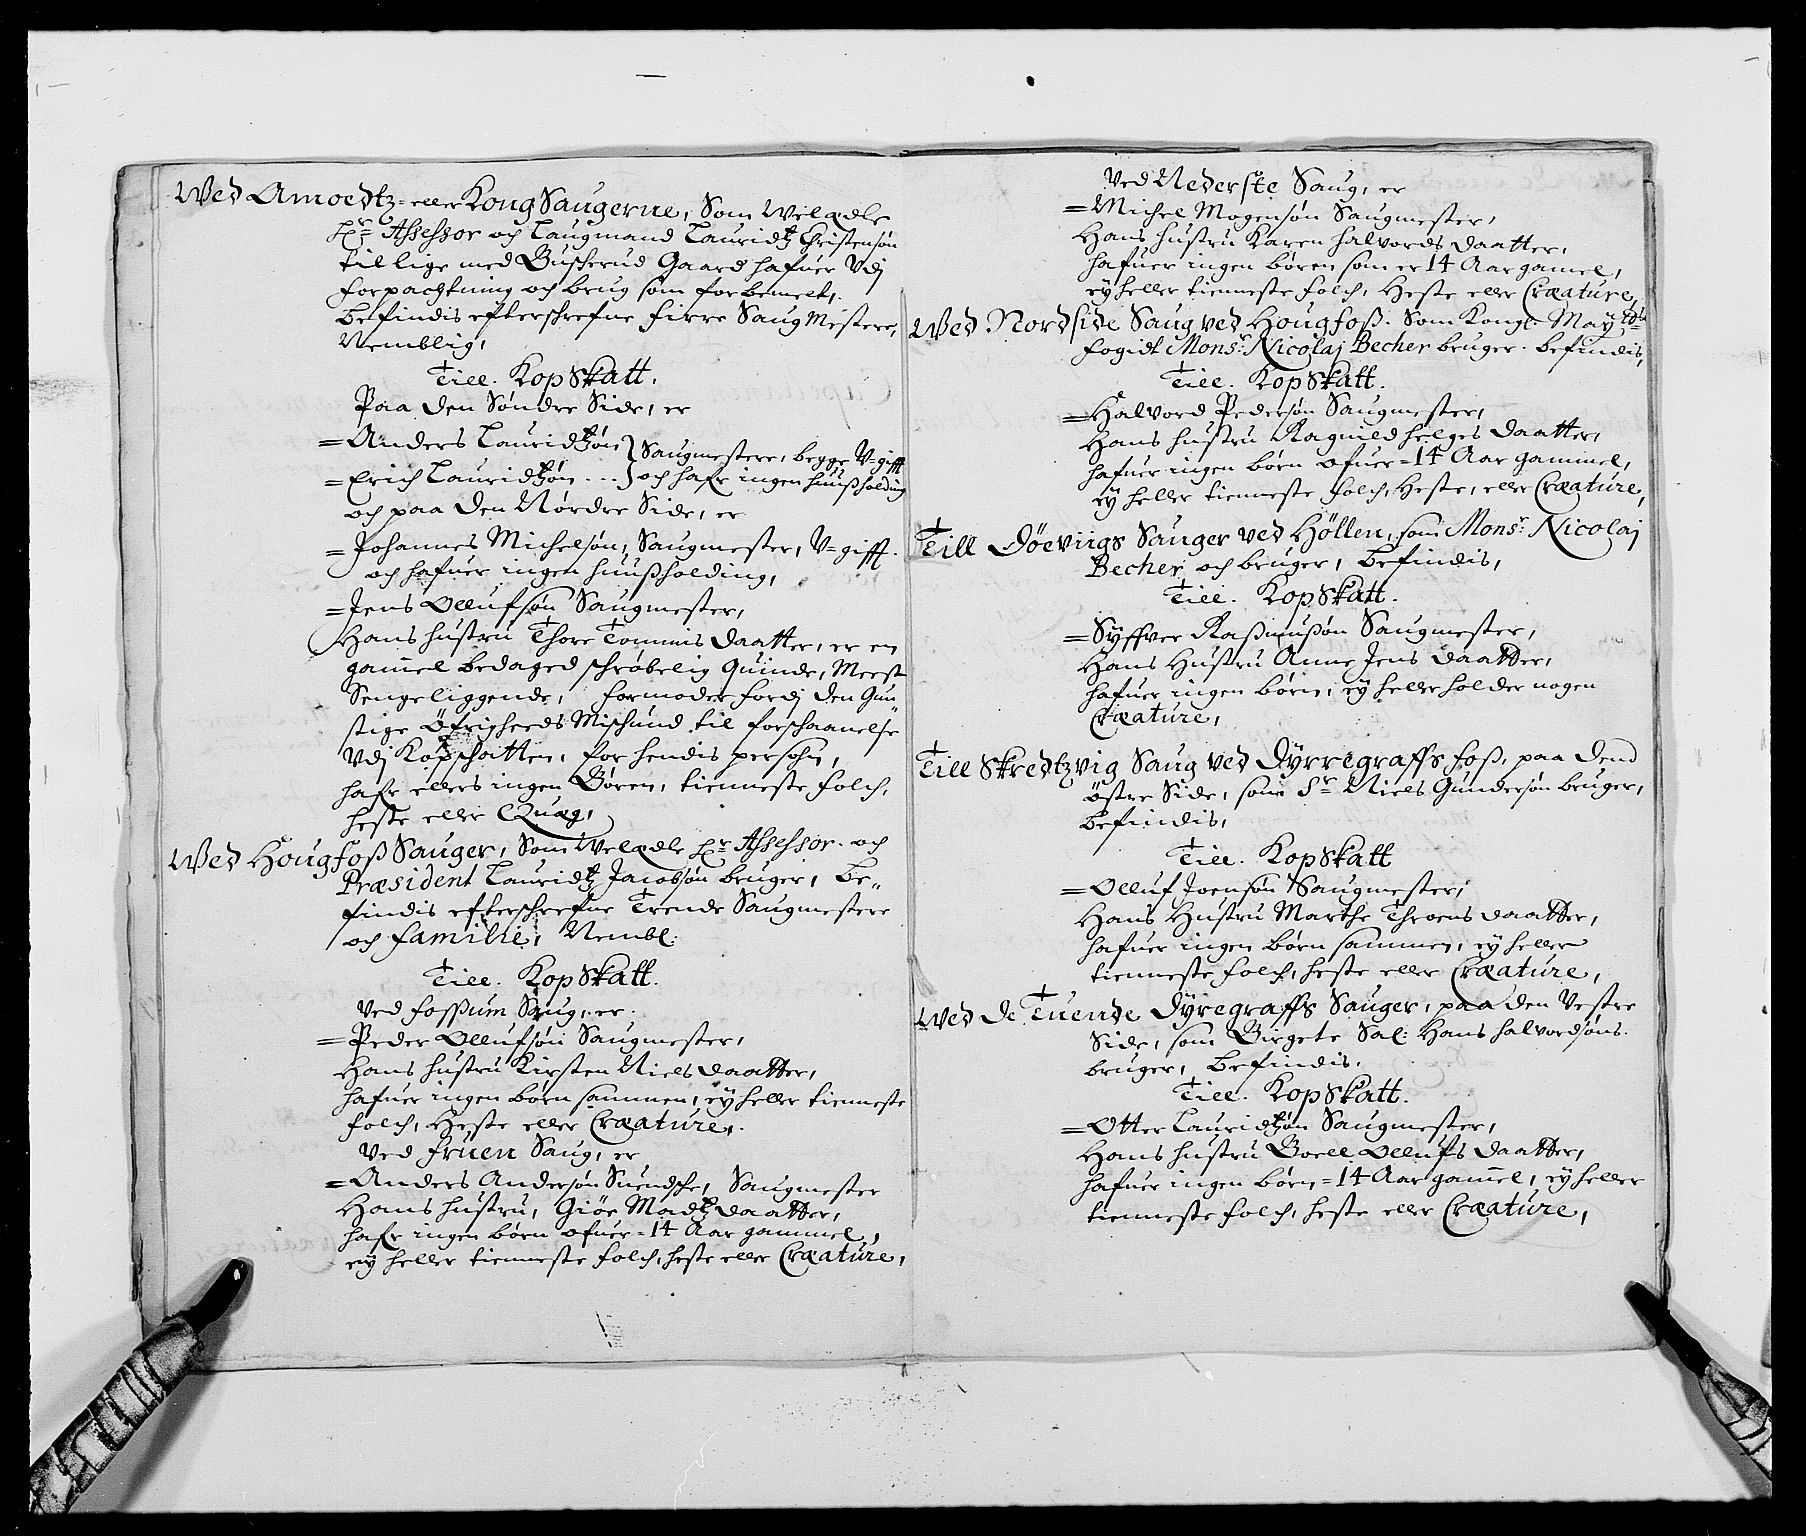 Wed Amoedtz- eller Kong Saugerne, Som Welædle
Hr: Assessor och Laugmand Lauridtz Christensøn
tillige med Buscherud Gaard hafuer Vdj
forpachtning och brug som forbemelt,
befindis efterschrefne firre Saug Mestere,
Nemblig,
Till. Kopskatt.
Paa den Søndre Side, er
= Anders Lauridtzøn } Saugmestere, begge V=gifft
= Erich Lauridtzøn ... } och hafr ingen huusholding
och paa den Nørdre Side, er
= Johannes Michelsøn, Saugmester, V=gifft.
och hafuer ingen huusholding,
= Jens Ollufsøn Saugmester,
Hans hustru Thore Tommis daatter, er en
gammel bedaged schrøbelig Quinde, Meest
Sengeliggende, formoder fordj den Gun„
stige Öfrigheeds Mischund til forschaanelse
Vdj Kopschatten, for hendis persohn,
hafr ellers ingen Børen, tienneste folch,
heste eller Quæg,
Wed Hougfoss Sauger, Som Welædle Hr Assessor och
Præsident Lauridtz Jacobsøn bruger, be„
findis efterschrefne Trende Saugmestere
och familie, Nembl:
Till. Kopskatt.
Ved fossum Saug, er.
= Peder Ollufsøn Saugmester,
Hans hustru Kirsten Niels daatter,
hafuer ingen børn sammen, ey heller tienneste
folch, Heste eller Cræature,
Ved fruen Saug, er
= Anders Andersøn Suendsche, Saugmester
Hans hustru, Giöe Madtz daatter,
hafr ingen børn ofuer = 14 Aar gammel,
ey heller tienneste folch, heste eller Cræature,
Ved Nederste Saug, er
= Michel Mogensøn Saugmester,
Hans hustru Karen halvords daatter,
hafuer ingen børen som er 14 Aar gamel,
ey heller tienneste folch, Heste eller Cræature,
Wed Nordside Saug ved Hougfoss. Som Kongl: Mayts
fogidt Monsr: Nicolaj Becher bruger. befindis,
Till. Kopskatt.
= Halvord Pedersøn Saugmester,
Hans hustru Ragnild helges daatter,
hafuer ingen børn ofuer = 14 Aar gammel,
ey heller tienneste folch, Heste, eller Cræature,
Till Döeviigs Sauger ved Höllen, som Monsr: Nicolaj
Becher och bruger, befindis,
Till. Kopskatt.
= Syffver Rassmussøn Saugmester,
Hans Hustru Anne Jens daatter,
hafuer ingen børn, ey heller holder nogen
Cræature,
Till Skredtzvig Saug ved Dyrregraffs foss, paa dend
Östre Side, som Sr Niels Gundersøn bruger,
befindis,
Till. Kopskatt
= Olluf Joensøn Saugmester,
Hans Hustru Marthe Throens daatter,
hafuer ingen børn sammen, ey heller
tienneste folch, heste eller Cræature,
Wed de Tuende Dyregraffs Sauger, paa den Vestre
Side, som Birgete Sal: Hans halvordsøns.
bruger, befindis,
Till. Kopskatt.
= Otter Lauridtzøn Saugmester,
Hans hustru Boell Ollufs daatter,
hafuer ingen børn = 14 Aar gamel, ey heller
tienneste folch, heste eller Cræature,